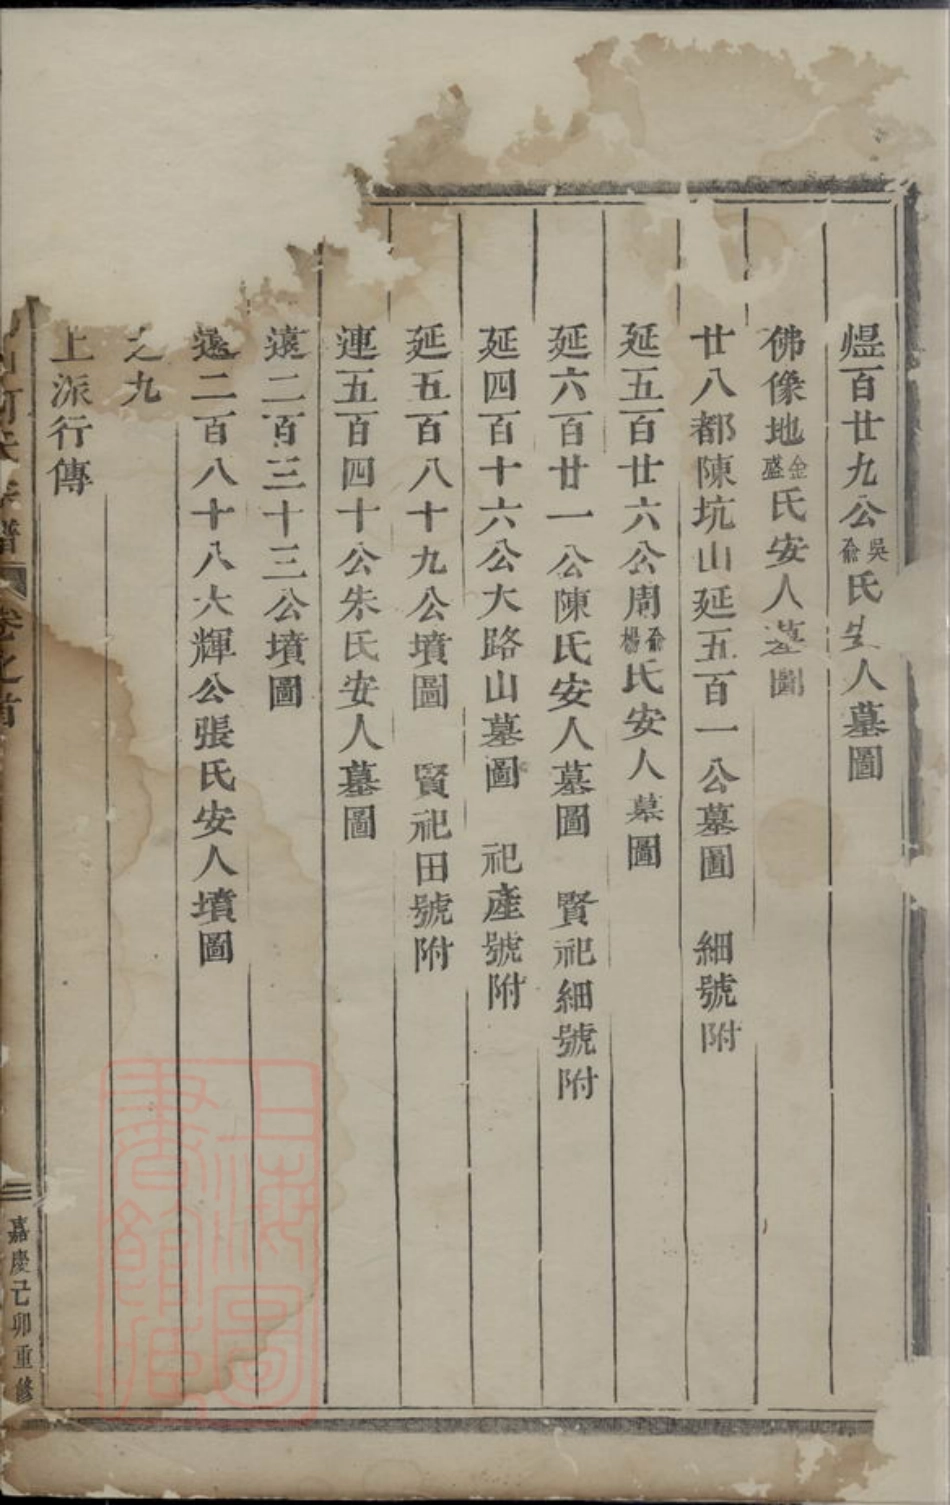 煜百廿九公吳俞氏安人墓圖
佛像地金盛氏安人墓圖
廿八都陳坑山延五百一公墓圖　細號附
延五百廿六公周俞楊氏安人墓圖
延六百廿一公陳氏安人墓圖　賢祀細號附
延四百十六公大路山墓圖　祀產號附
延五百八十九公墳圖　賢祀田號附
連五百四十公朱氏安人墓圖
遠二百三十三公墳圖
遠二百八十八大輝公張氏安人墳圖
之九
上派行傳
氏 譜 卷之首
三
嘉慶己卯重修
上海圖書館藏